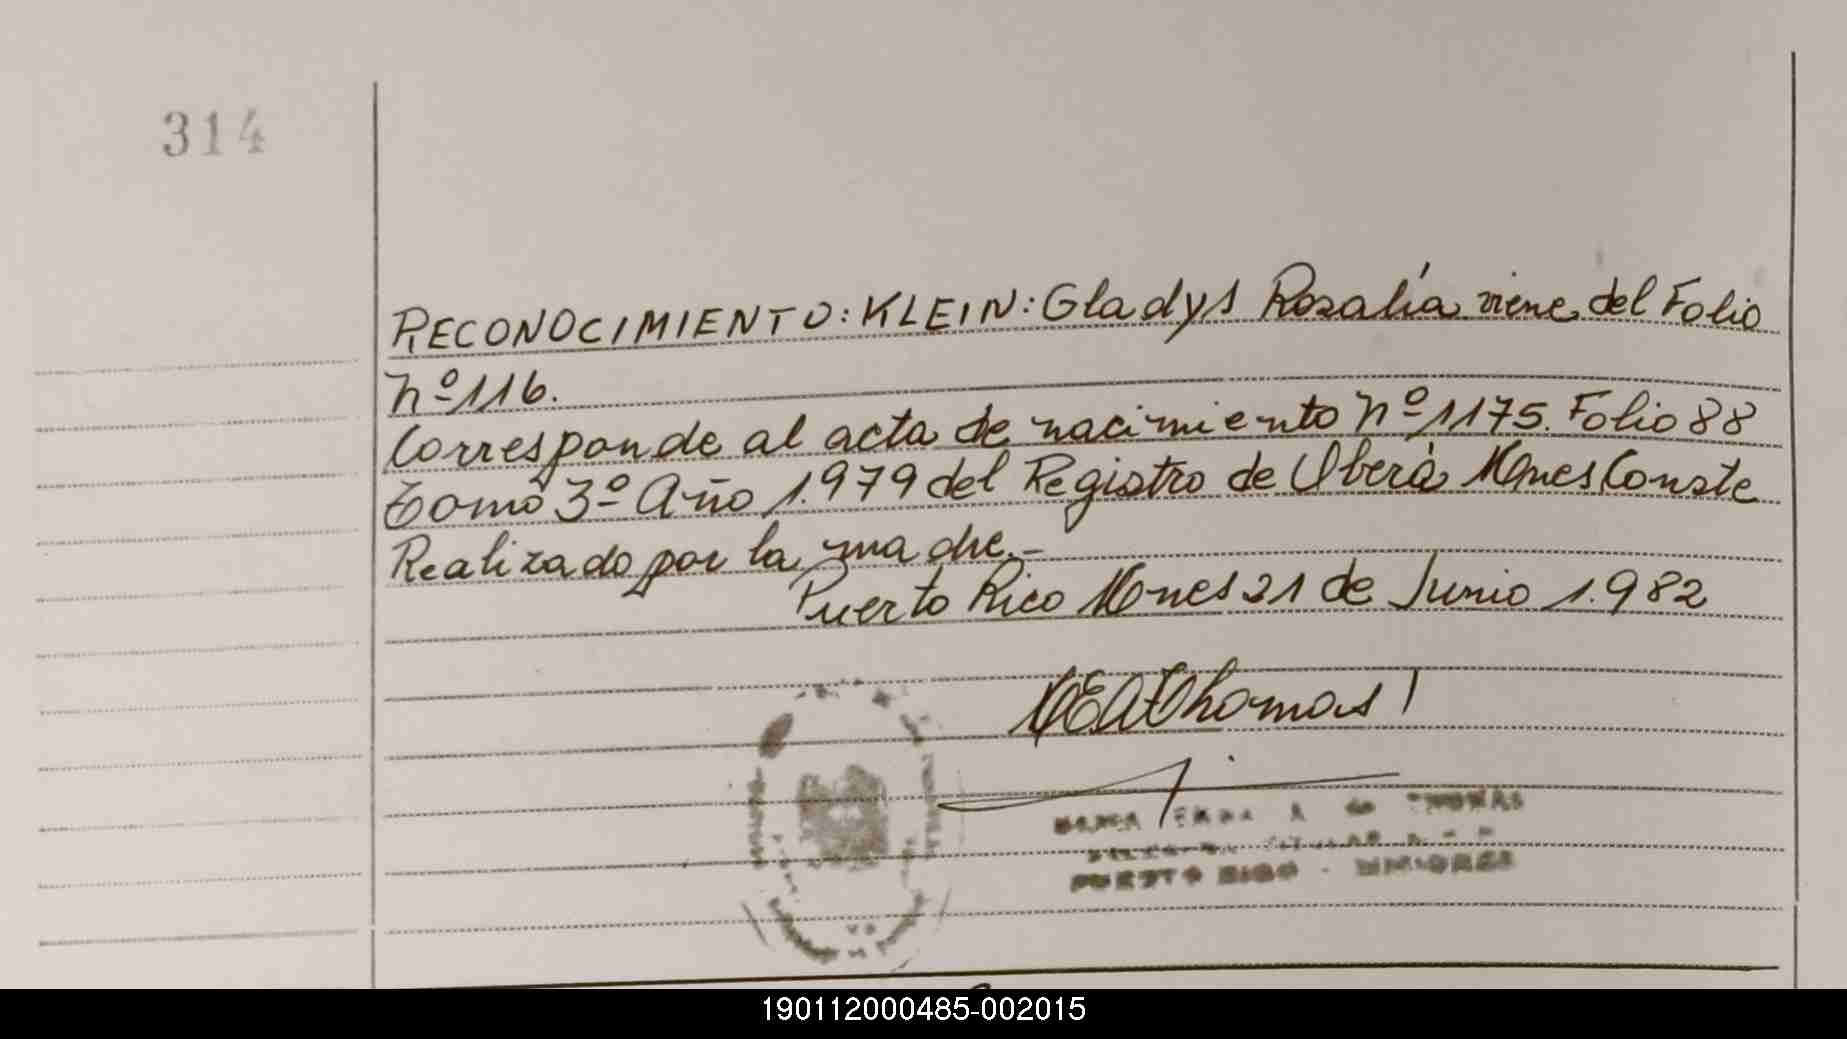 314
RECONOCIMIENTO: KLEIN: Gladys Rosalía viene del Folio
Nº 116.
Corresponde al acta de nacimiento Nº 1175. Folio 88
Tomo 3º Año 1.979 del Registro de Oberá Mnes Conste
Realizado por la madre.-
Puerto Rico Mnes 21 de Junio 1.982
MEAThomas
MARIA ERMA A de THOMAS
TITULAR
PUERTO RICO - MISIONES
190112000485-002015